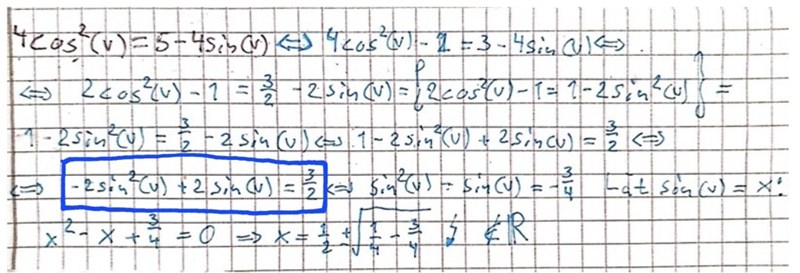 4cos²(v) = 5 - 4sin(v) ⇔ 4cos²(v) - 2 = 3 - 4sin(v) ⇔
⇔ 2cos²(v) - 1 = 3/2 - 2sin(v) = {2cos²(v) - 1 = 1 - 2sin²(v)} =
1 - 2sin²(v) = 3/2 - 2sin(v) ⇔ 1 - 2sin²(v) + 2sin(v) = 3/2 ⇔
⇔ -2sin²(v) + 2sin(v) = 3/2 ⇔ sin²(v) - sin(v) = -3/4 Låt sin(v) = x:
x² - x + 3/4 = 0 ⇒ x = 1/2 ± √(1/4 - 3/4) ↯ ∉ ℝ